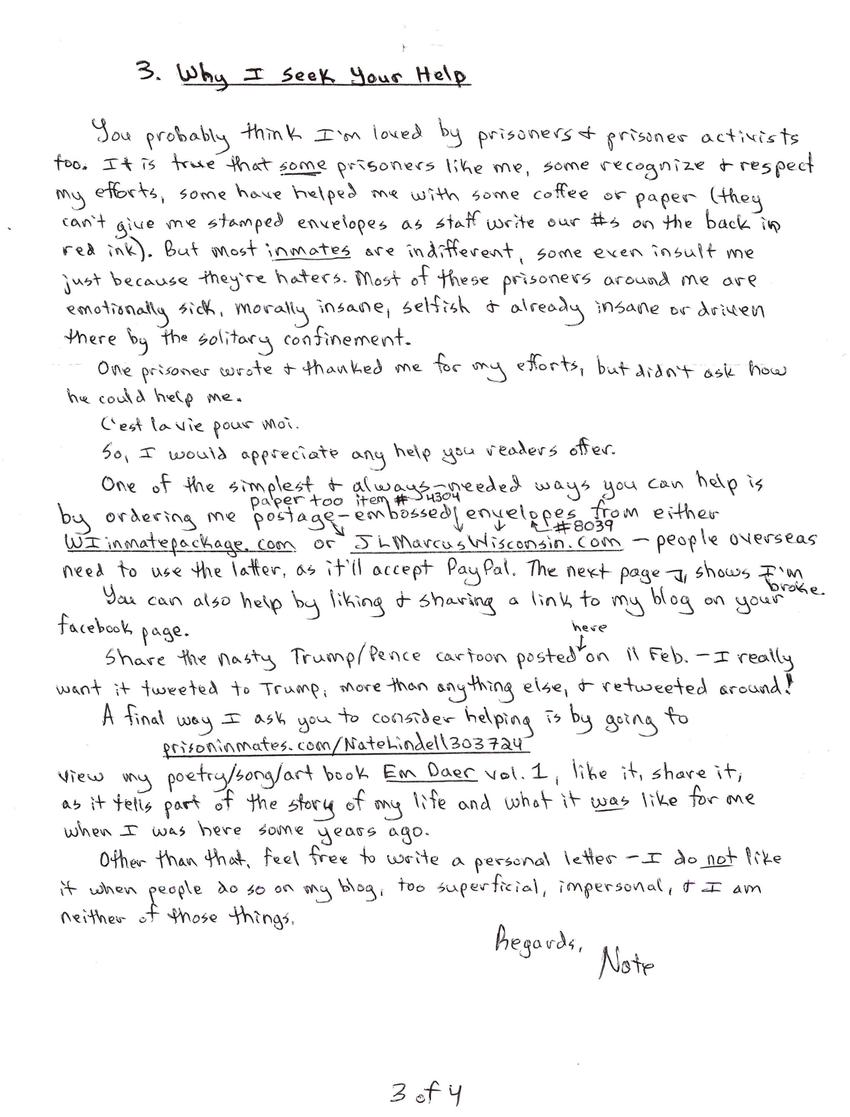 3. Why I Seek Your Help
You probably think I'm loved by prisoners & prisoner activists
too. It is true that some prisoners like me, some recognize & respect
my efforts, some have helped me with some coffee or paper (they
can't give me stamped envelopes as staff write our #s on the back in
red ink). But most inmates are indifferent, some even insult me
just because they're haters. Most of these prisoners around me are
emotionally sick, morally insane, selfish & already insane or driven
there by the solitary confinement.
One prisoner wrote & thanked me for my efforts, but didn't ask how
he could help me.
C'est la vie pour moi.
So, I would appreciate any help you readers offer.
One of the simplest & always-needed ways you can help is
paper too item # 4304
by ordering me postage-embossed envelopes from either
#8039
WIinmatepackage.com or JLMarcusWisconsin.com - people overseas
need to use the latter, as it'll accept PayPal. The next page shows I'm
broke.
You can also help by liking & sharing a link to my blog on your
facebook page.
here
Share the nasty Trump/Pence cartoon posted on 11 Feb. - I really
want it tweeted to Trump, more than anything else, & retweeted around!
A final way I ask you to consider helping is by going to
prisoninmates.com/NateLindell303724
view my poetry/song/art book Em Daer vol. 1, like it, share it,
as it tells part of the story of my life and what it was like for me
when I was here some years ago.
Other than that, feel free to write a personal letter - I do not like
it when people do so on my blog, too superficial, impersonal, & I am
neither of those things.
Regards,
Nate
3 of 4